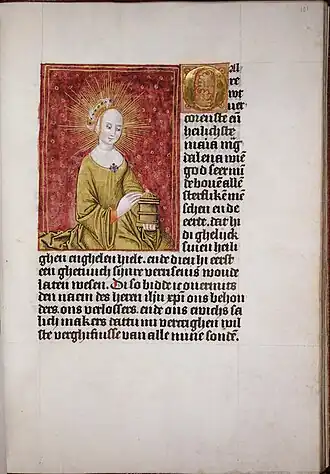 O al
re
ver
corenste en
heilichste
maria mag
dalena wien
god seer mi
de boven alle
sterfliken men
schen en de
eerte. dat hi
di ghelijck
sinen heili
ghen enghelen hielt. ende dien hi eerst
een ghetuuch sijnre verrisenis woude
laten wesen. Di so bidde ic overmits
den naem des heren ihu xpi ons behou
ders. ons verlossers. ende ons ewichs sa
lich makers dattu mi vercrighen wil
ste verghifnisse van alle mine sonden